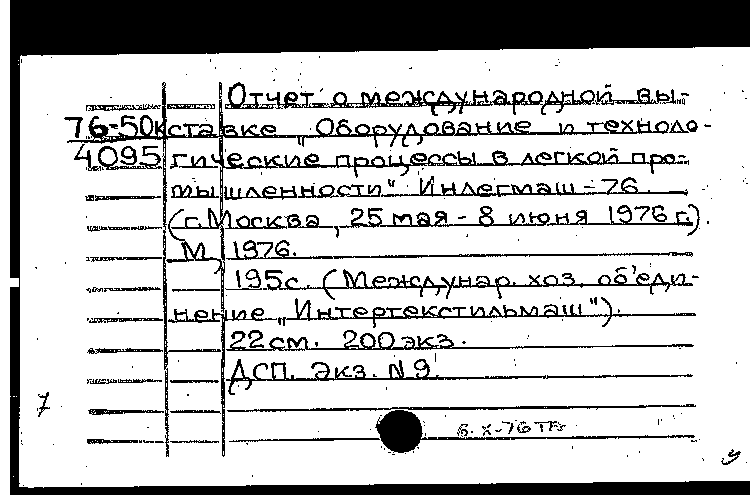 Отчет о международной вы-
76-50к ставке „Оборудование и техноло-
4095 гические процессы в легкой про-
мышленности" Инлегмаш-76.
(г. Москва, 25 мая - 8 июня 1976 г.).
М, 1976.
195с. (Междунар. хоз. об'еди-
нение „Интертекстильмаш").
22 см. 200 экз.
ДСП. Экз. N 9.
7